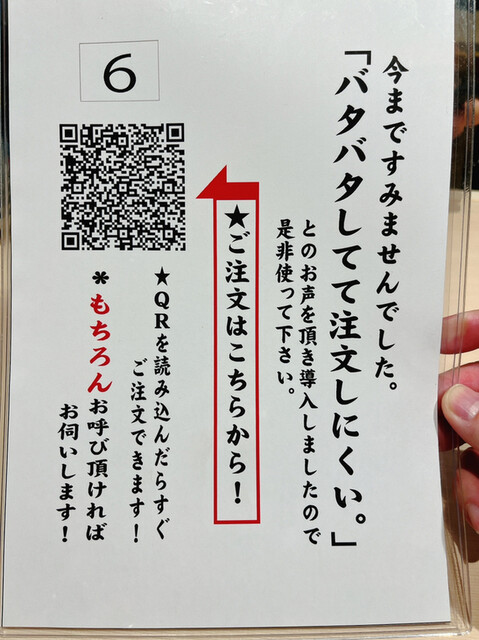 今まですみませんでした。
「バタバタしてて注文しにくい。」
とのお声を頂き導入しましたので
是非使って下さい。
★ご注文はこちらから！
6
★QRを読み込んだらすぐ
ご注文できます！
＊もちろんお呼び頂ければ
お伺いします！